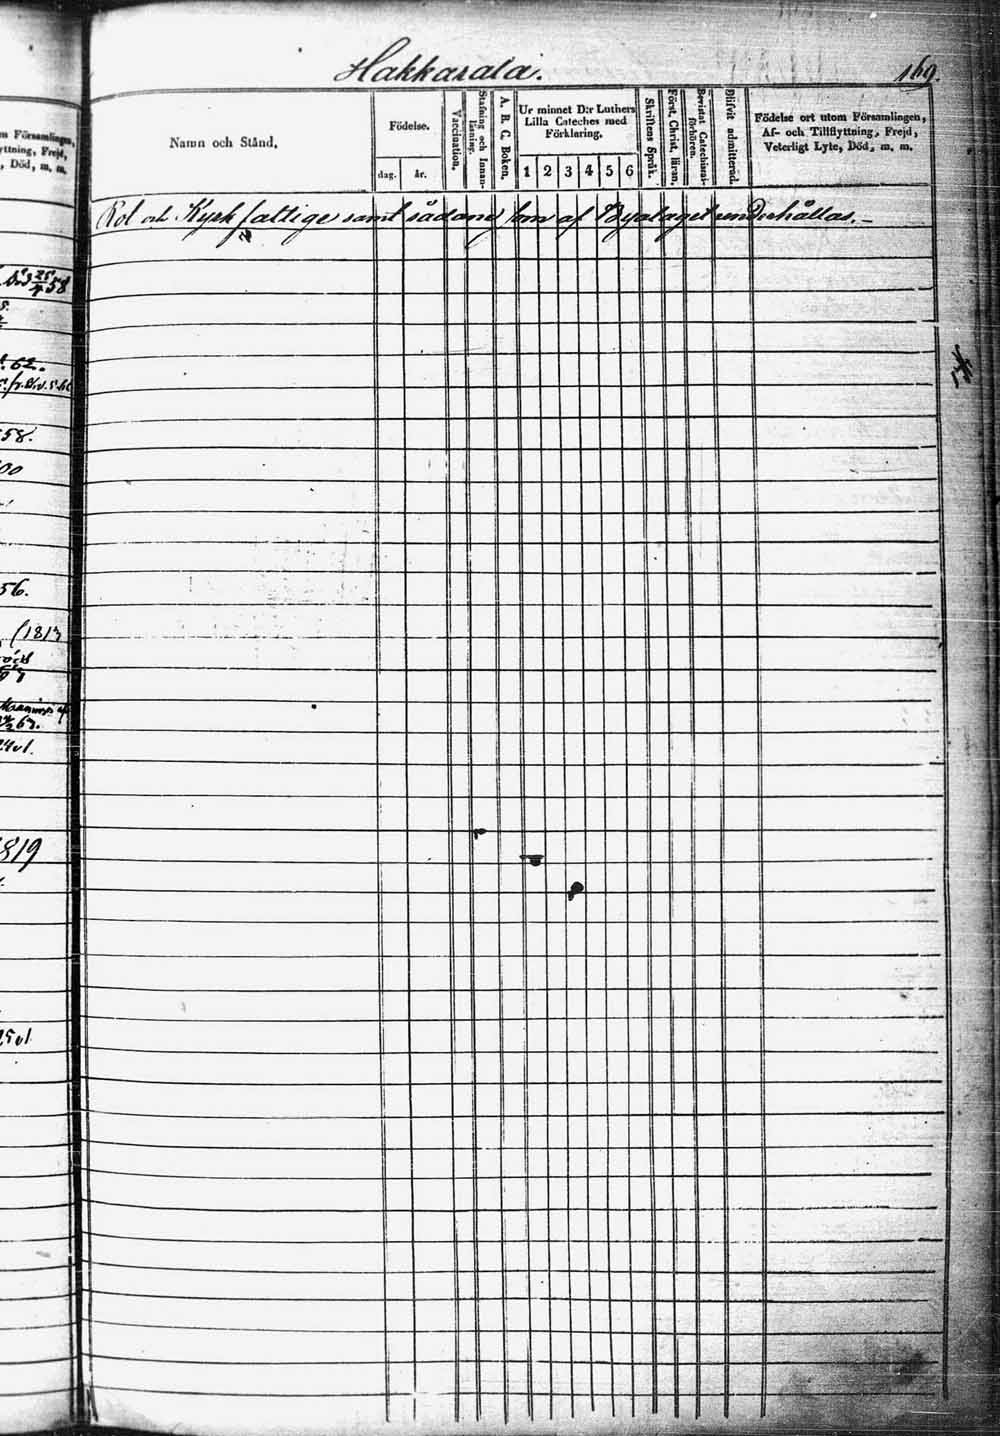 Hakkarala.
169.
Namn och Stånd.
Födelse.
dag.
år.
Vaccination.
Stafning och Innan-
läsning.
A. B. C. Boken.
Ur minnet D:r Luthers
Lilla Cateches med
Förklaring.
1 2 3 4 5 6
Skriftens Språk.
Först. Christ. läran.
Bevistat Catechismi-
förhören.
Blifvit admitterad.
Födelse ort utom Församlingen,
Af- och Tillflyttning, Frejd,
Veterligt Lyte, Död, m. m.
Rot och Kyrkfattige samt sådane som af Byalaget underhållas.
m Församlingen,
yttning, Frejd,
, Död, m. m.
58
62.
58.
00
56.
(1813
63.
1819